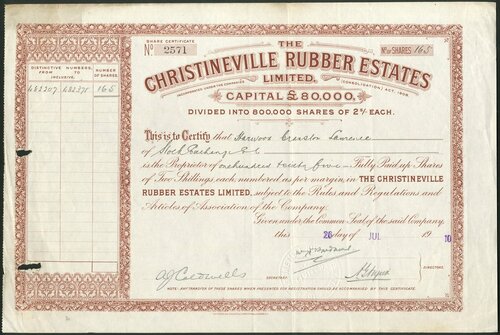 SHARE CERTIFICATE
No 2571
No OF SHARES 165
THE
CHRISTINEVILLE RUBBER ESTATES
LIMITED.
INCORPORATED UNDER THE COMPANIES (CONSOLIDATION) ACT, 1908.
CAPITAL £80,000.
DIVIDED INTO 800,000 SHARES OF 2s/- EACH.
DISTINCTIVE NUMBERS, FROM TO INCLUSIVE.
NUMBER OF SHARES.
482207 482371 165
This is to Certify that Lawrence
of Stock Exchange E.C.
is the Proprietor of one hundred & sixty five Fully Paid up Shares
of Two Shillings each, numbered as per margin, in THE CHRISTINEVILLE
RUBBER ESTATES LIMITED, subject to the Rules and Regulations and
Articles of Association of the Company.
Given under the Common Seal of the said Company,
this 26 day of JUL 19 10
DIRECTORS.
SECRETARY
NOTE. ANY TRANSFER OF THESE SHARES WHEN PRESENTED FOR REGISTRATION SHOULD BE ACCOMPANIED BY THIS CERTIFICATE.